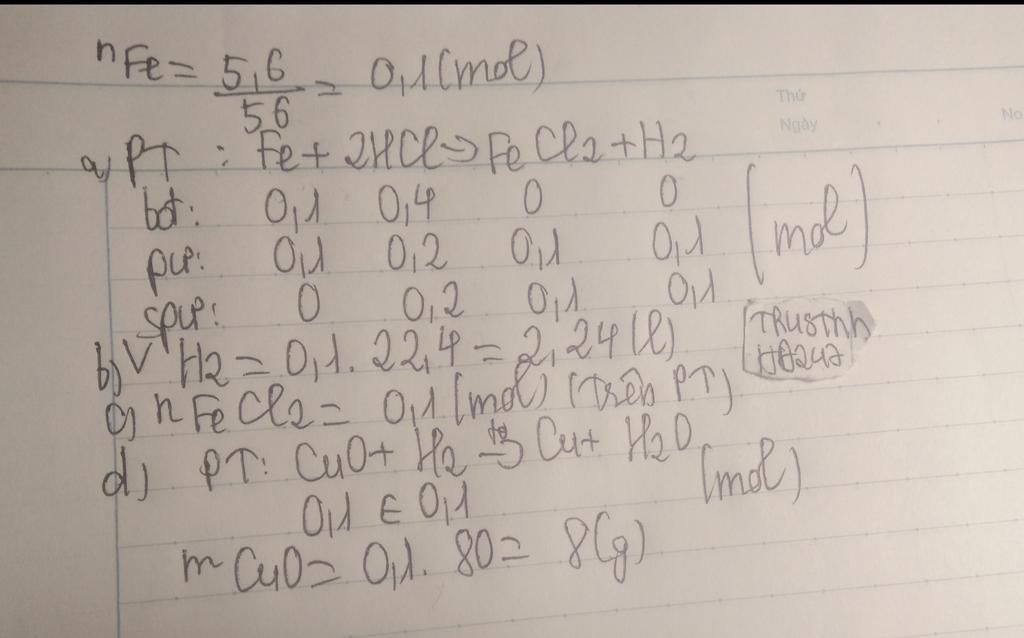 nFe = 5,6 / 56 = 0,1 (mol)
Thứ
Ngày
No
a) PT : Fe + 2HCl → FeCl2 + H2
bđ: 0,1 0,4 0 0 (mol)
pư: 0,1 0,2 0,1 0,1
spư: 0 0,2 0,1 0,1
b) V H2 = 0,1 . 22,4 = 2,24 (l)
c) nFeCl2 = 0,1 (mol) (trên PT)
d) PT: CuO + H2 → Cu + H2O
0,1 ← 0,1 (mol)
mCuO = 0,1 . 80 = 8 (g)